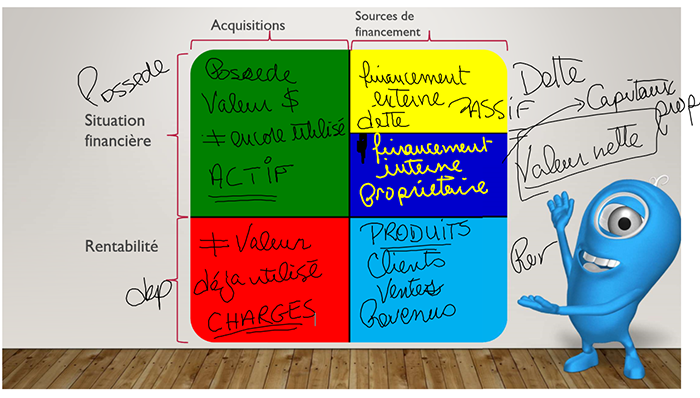 Acquisitions
Sources de
financement
Possede
Situation
financière
Possede
Valeur $
≠ encore utilisé
ACTIF
financement
externe
dette
PASSIF
Dette
Capitaux
prop
Valeur nette
financement
interne
proprietaire
Rentabilité
dep
≠ Valeur
déjà utilisé
CHARGES
PRODUITS
Clients
Ventes
Revenus
Rev